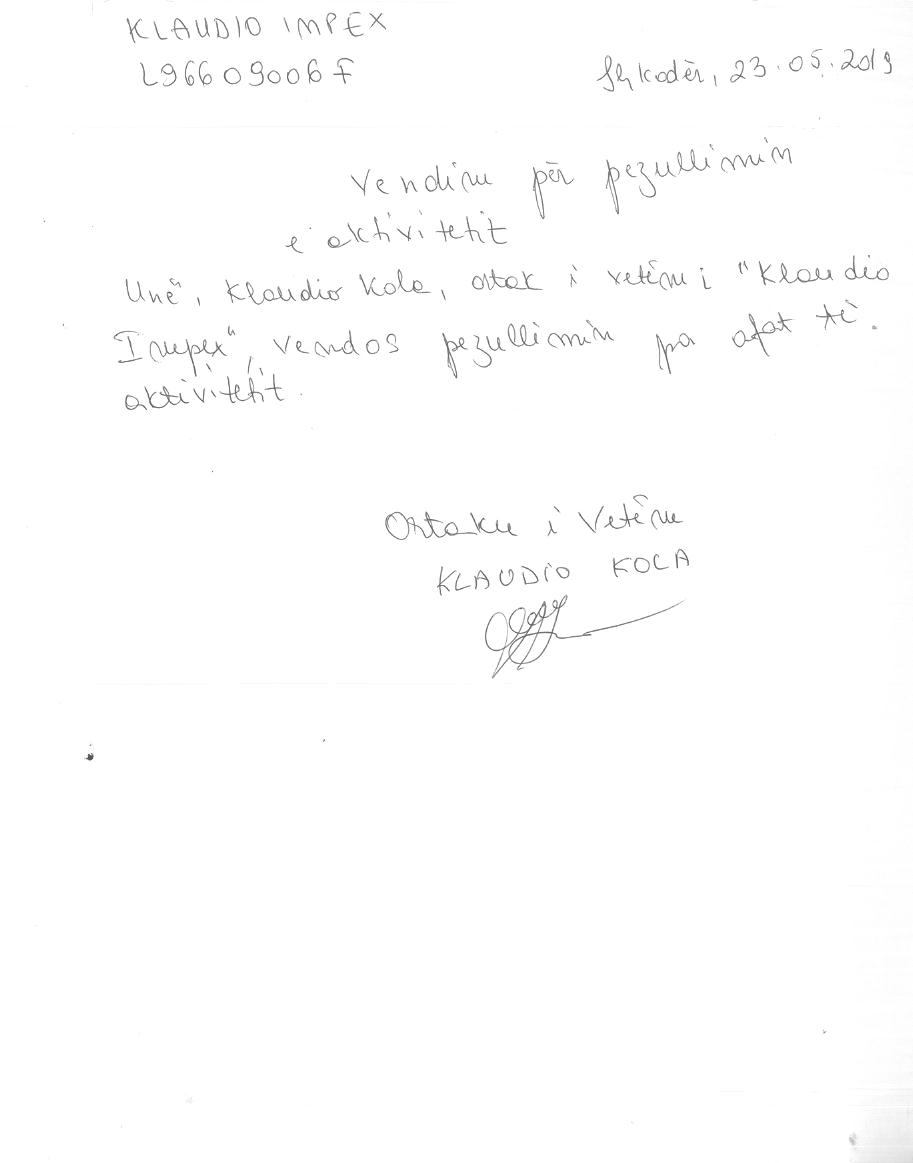 KLAUDIO IMPEX
L96609006F
Shkodër, 23.05.2019
Vendim për pezullimin
e aktivitetit
Unë, Klaudio Kola, ortak i vetëm i "Klaudio
Impex", vendos pezullimin pa afat të
aktivitetit.
Ortaku i Vetëm
KLAUDIO KOLA